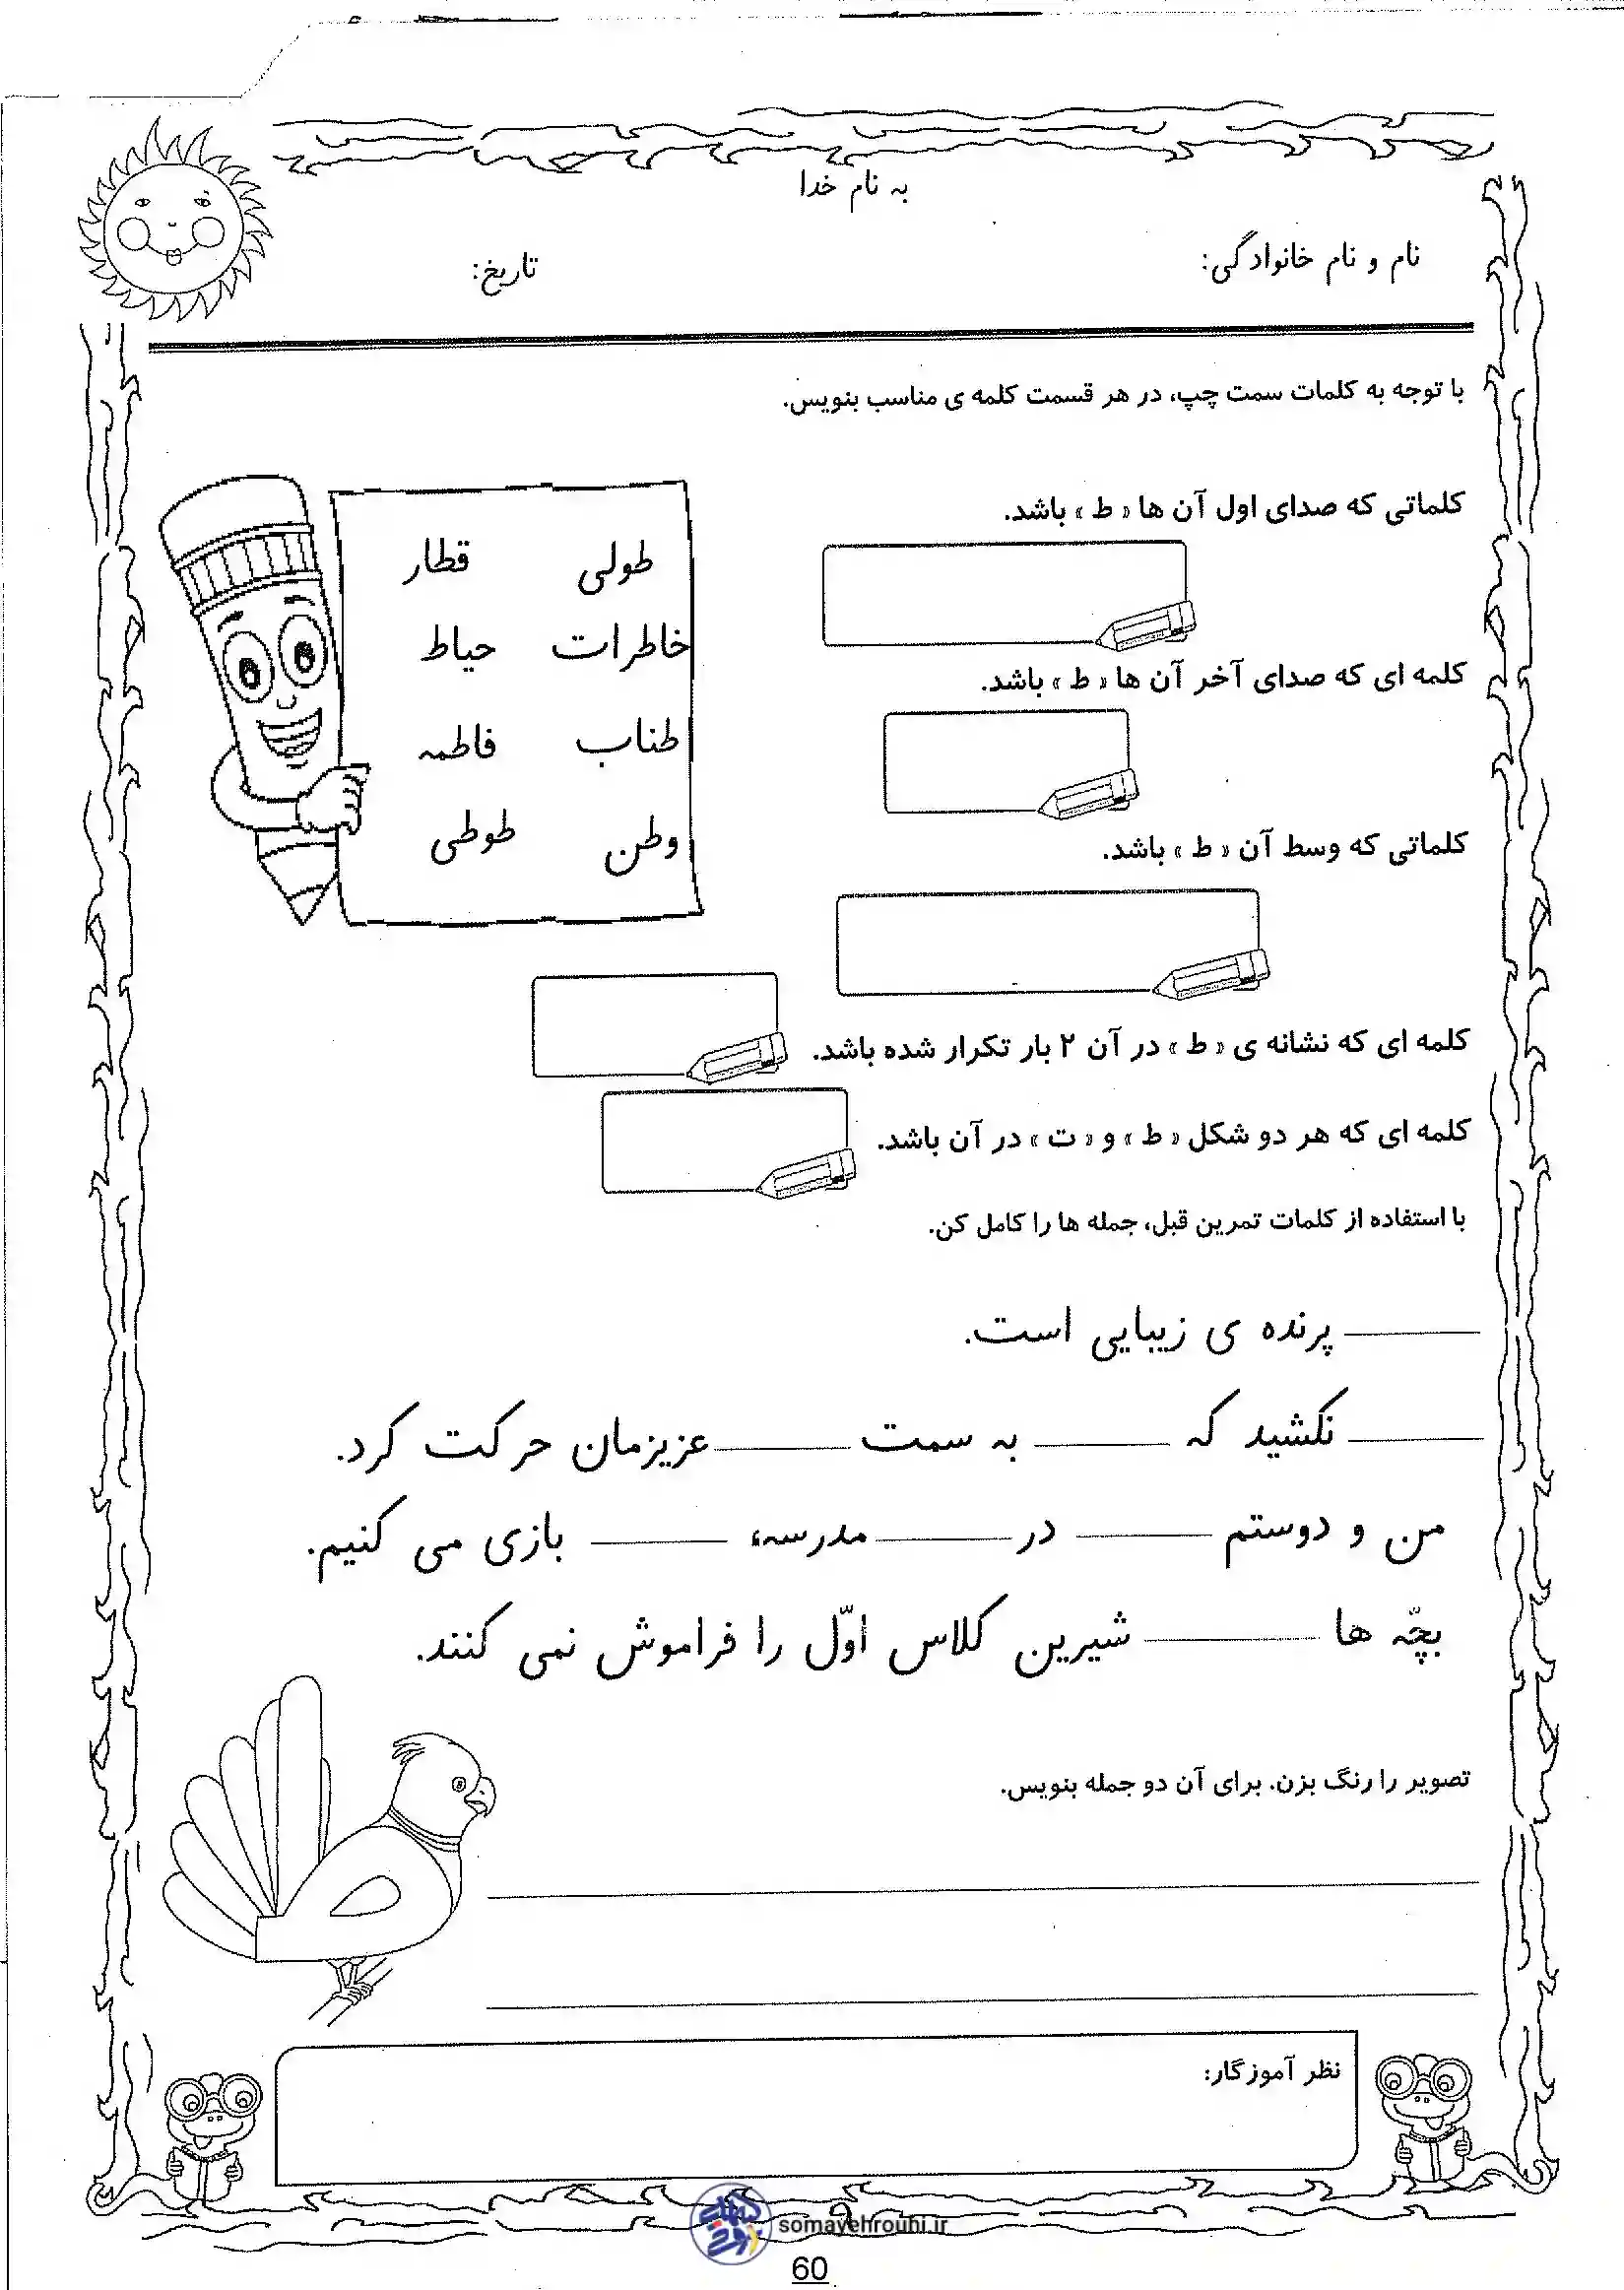 به نام خدا
نام و نام خانوادگی:
تاریخ:
با توجه به کلمات سمت چپ، در هر قسمت کلمه ی مناسب بنویس.
کلماتی که صدای اول آن ها « ط » باشد.
طولی قطار
خاطرات حیاط
طناب فاطمه
وطن طوطی
کلمه ای که صدای آخر آن ها « ط » باشد.
کلماتی که وسط آن « ط » باشد.
کلمه ای که نشانه ی « ط » در آن ۲ بار تکرار شده باشد.
کلمه ای که هر دو شکل « ط » و « ت » در آن باشد.
با استفاده از کلمات تمرین قبل، جمله ها را کامل کن.
پرنده ی زیبایی است.
نکشید که به سمت عزیزمان حرکت کرد.
من و دوستم در مدرسه، بازی می کنیم.
بچّه ها شیرین کلاس اوّل را فراموش نمی کنند.
تصویر را رنگ بزن. برای آن دو جمله بنویس.
نظر آموزگار:
somayehrouhi.ir
60